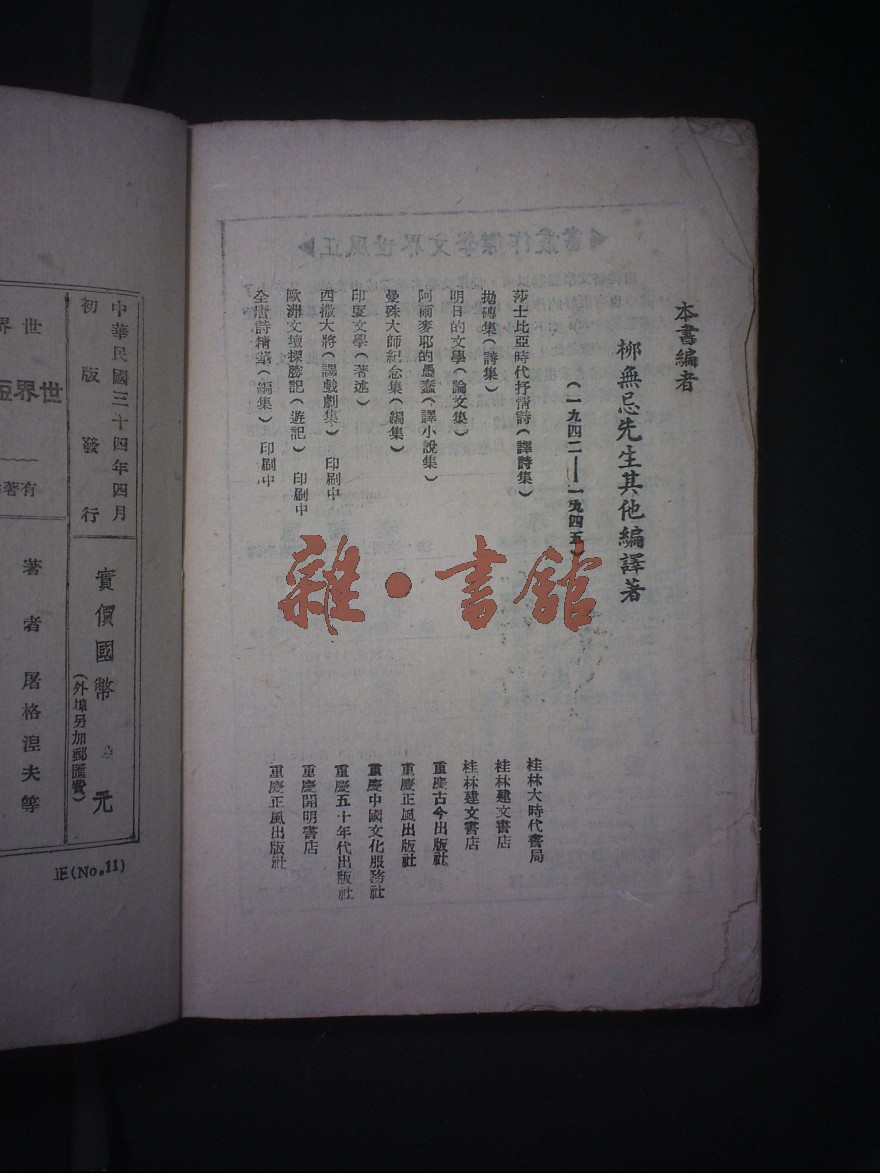 本書編者
柳無忌先生其他編譯著
(一九四二——一九四五)
莎士比亞時代抒情詩(譯詩集) 桂林大時代書局
拋磚集(詩集) 桂林建文書店
明日的文學(論文集) 桂林建文書店
阿爾麥耶的愚蠢(譯小說集) 重慶古今出版社
曼殊大師紀念集(編集) 重慶正風出版社
印度文學(著述) 重慶中國文化服務社
西撒大將(譯戲劇集) 印刷中 重慶五十年代出版社
歐洲文壇探勝記(遊記) 印刷中 重慶開明書店
全唐詩精華(編集) 印刷中 重慶正風出版社
雜·書館
中華民國三十四年四月
初版發行
實價國幣 元
(外埠另加郵匯費)
世界
世界
有著
著者 屠格涅夫等
正(No.11)